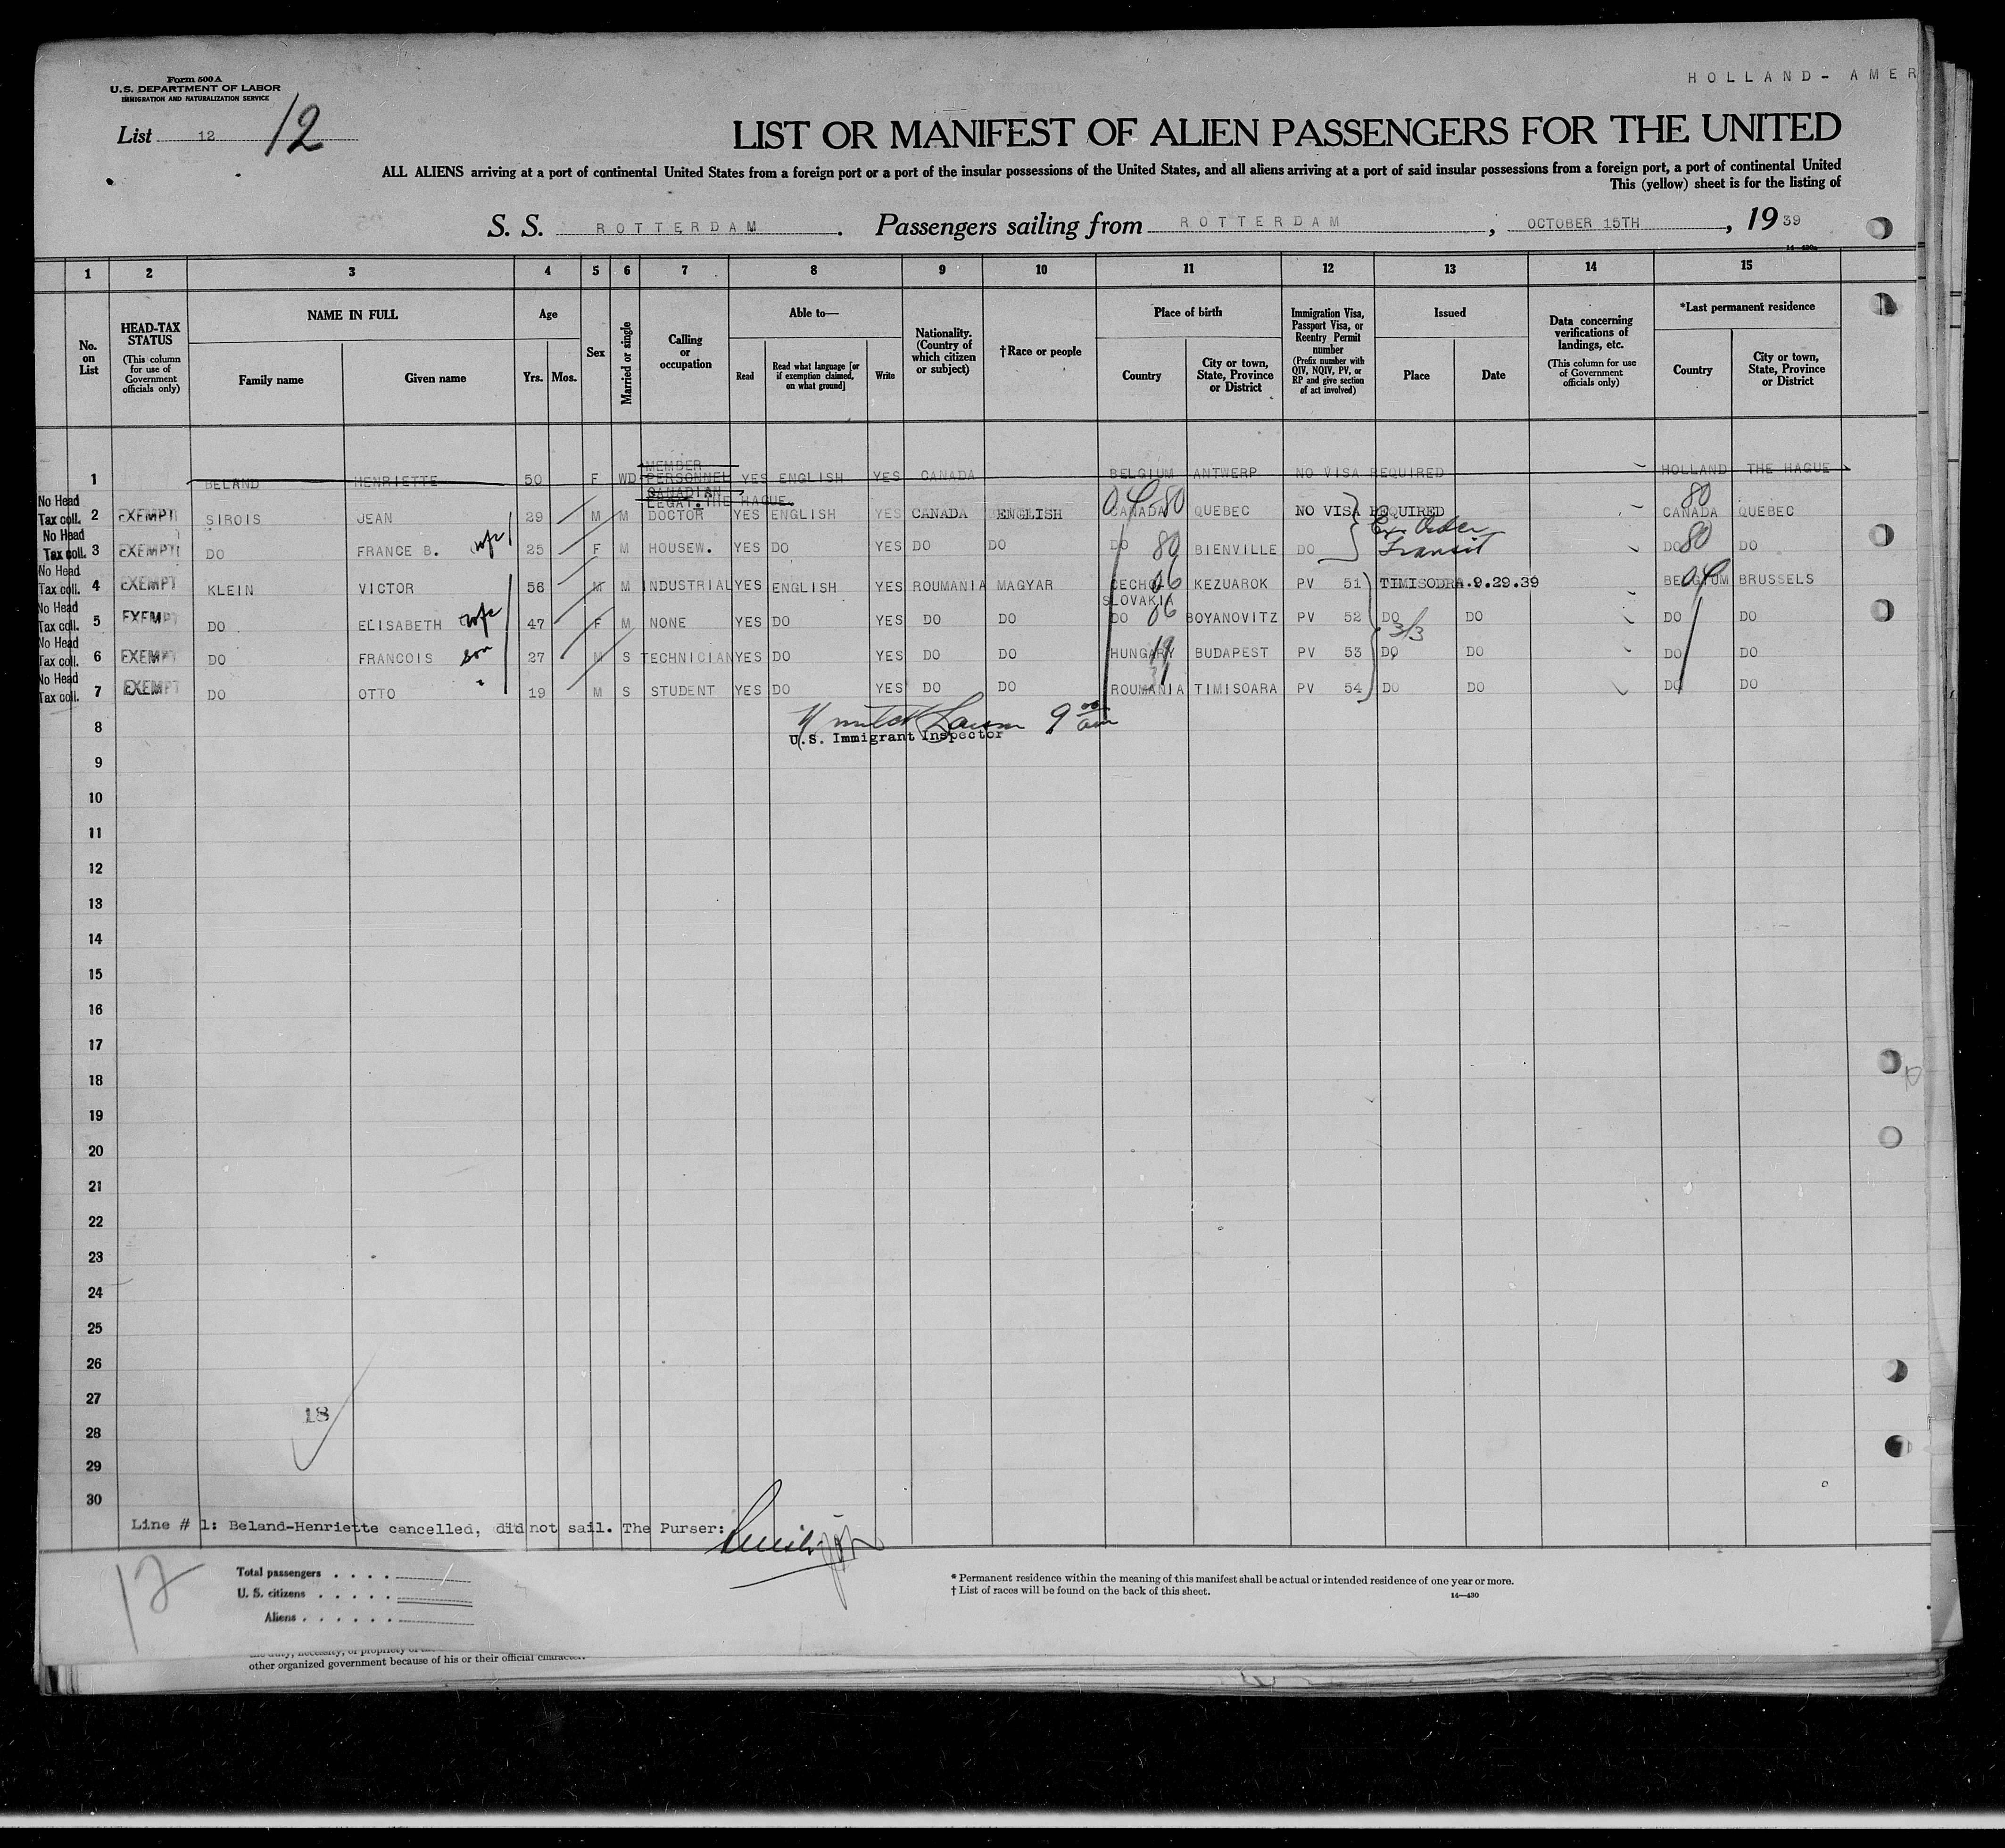 Form 500 A
U.S. DEPARTMENT OF LABOR
IMMIGRATION AND NATURALIZATION SERVICE
HOLLAND- AMER
List 12 12
LIST OR MANIFEST OF ALIEN PASSENGERS FOR THE UNITED
ALL ALIENS arriving at a port of continental United States from a foreign port or a port of the insular possessions of the United States, and all aliens arriving at a port of said insular possessions from a foreign port, a port of continental United
This (yellow) sheet is for the listing of
S. S. ROTTERDAM. Passengers sailing from ROTTERDAM, OCTOBER 15TH, 1939
14—430a
1 2 3 4 5 6 7 8 9 10 11 12 13 14 15
No. on List
HEAD-TAX STATUS (This column for use of Government officials only)
NAME IN FULL
Family name Given name
Age
Yrs. Mos.
Sex
Married or single
Calling or occupation
Able to—
Read Read what language [or if exemption claimed, on what ground] Write
Nationality. (Country of which citizen or subject)
†Race or people
Place of birth
Country City or town, State, Province or District
Immigration Visa, Passport Visa, or Reentry Permit number (Prefix number with QIV, NQIV, PV, or RP and give section of act involved)
Issued
Place Date
Data concerning verifications of landings, etc. (This column for use of Government officials only)
*Last permanent residence
Country City or town, State, Province or District
1 BELAND HENRIETTE 50 F WD MEMBER PERSONNEL CANADIAN LEGAT. THE HAGUE. YES ENGLISH YES CANADA BELGIUM ANTWERP NO VISA REQUIRED HOLLAND THE HAGUE
No Head Tax coll. 2 EXEMPT SIROIS JEAN 29 M M DOCTOR YES ENGLISH YES CANADA ENGLISH CANADA 04 80 QUEBEC NO VISA REQUIRED CANADA 80 QUEBEC
No Head Tax coll. 3 EXEMPT DO FRANCE B. wfe 25 F M HOUSEW. YES DO YES DO DO DO 80 BIENVILLE DO Ex. Order Transit DO 80 DO
No Head Tax coll. 4 EXEMPT KLEIN VICTOR 56 M M INDUSTRIAL YES ENGLISH YES ROUMANIA MAGYAR CECHO SLOVAKIA 06 KEZUAROK PV 51 TIMISODRA.9.29.39 BELGIUM 04 BRUSSELS
No Head Tax coll. 5 EXEMPT DO ELISABETH wfe 47 F M NONE YES DO YES DO DO DO 06 BOYANOVITZ PV 52 DO 3/3 DO DO DO
No Head Tax coll. 6 EXEMPT DO FRANCOIS son 27 M S TECHNICIAN YES DO YES DO DO HUNGARY 19 BUDAPEST PV 53 DO DO DO DO
No Head Tax coll. 7 EXEMPT DO OTTO " 19 M S STUDENT YES DO YES DO DO ROUMANIA 31 TIMISOARA PV 54 DO DO DO DO
8 9 00 am
U.S. Immigrant Inspector
9
10
11
12
13
14
15
16
17
18
19
20
21
22
23
24
25
26
27
18
28
29
30
Line # 1: Beland-Henriette cancelled, did not sail. The Purser:
12
Total passengers
U. S. citizens
Aliens
* Permanent residence within the meaning of this manifest shall be actual or intended residence of one year or more.
† List of races will be found on the back of this sheet.
14—430
other organized government because of his or their official character.